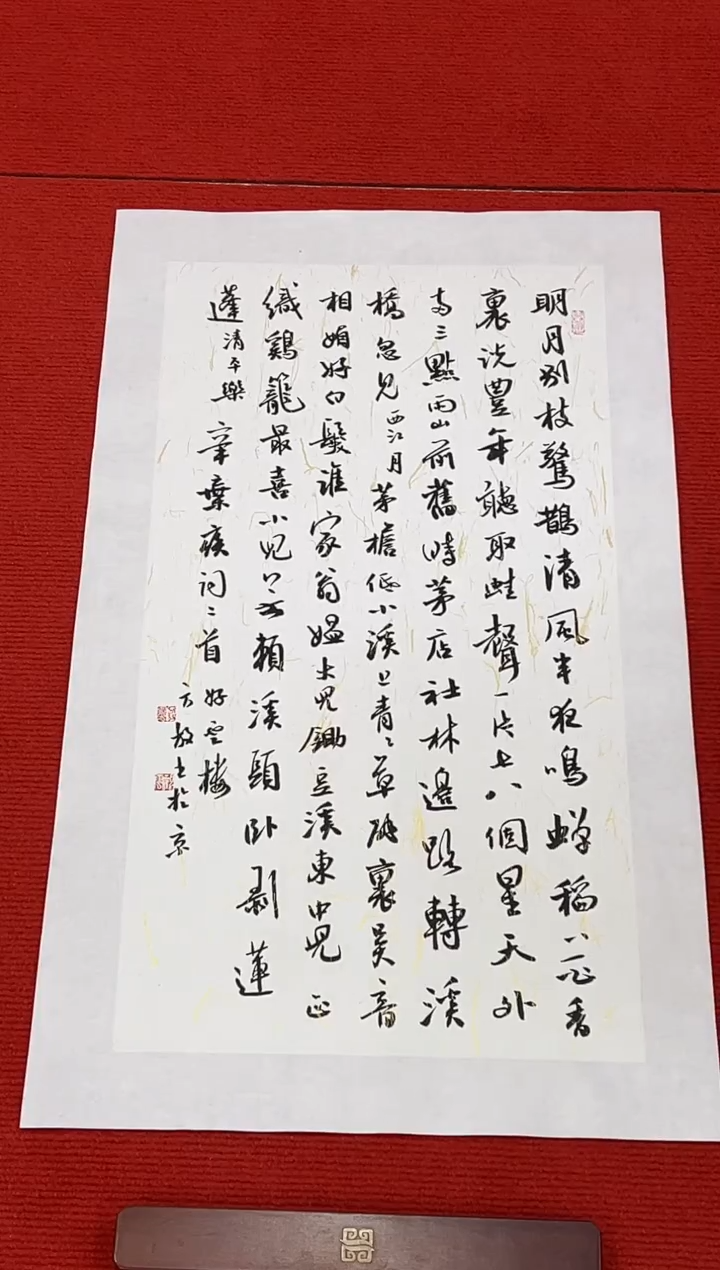 明月别枝驚鵲清風半夜鳴蟬稻花香
裏說豐年聽取蛙聲一片七八個星天外
两三點雨山前舊時茅店社林邊路轉溪
橋忽見西江月茅檐低小溪上青〻草醉裏吳音
相媚好白髮誰家翁媼大兒鋤豆溪東中兒正
織鷄籠最喜小兒賴溪頭卧剥蓮
蓬清平樂辛棄疾詞二首好雲樓
方放於京